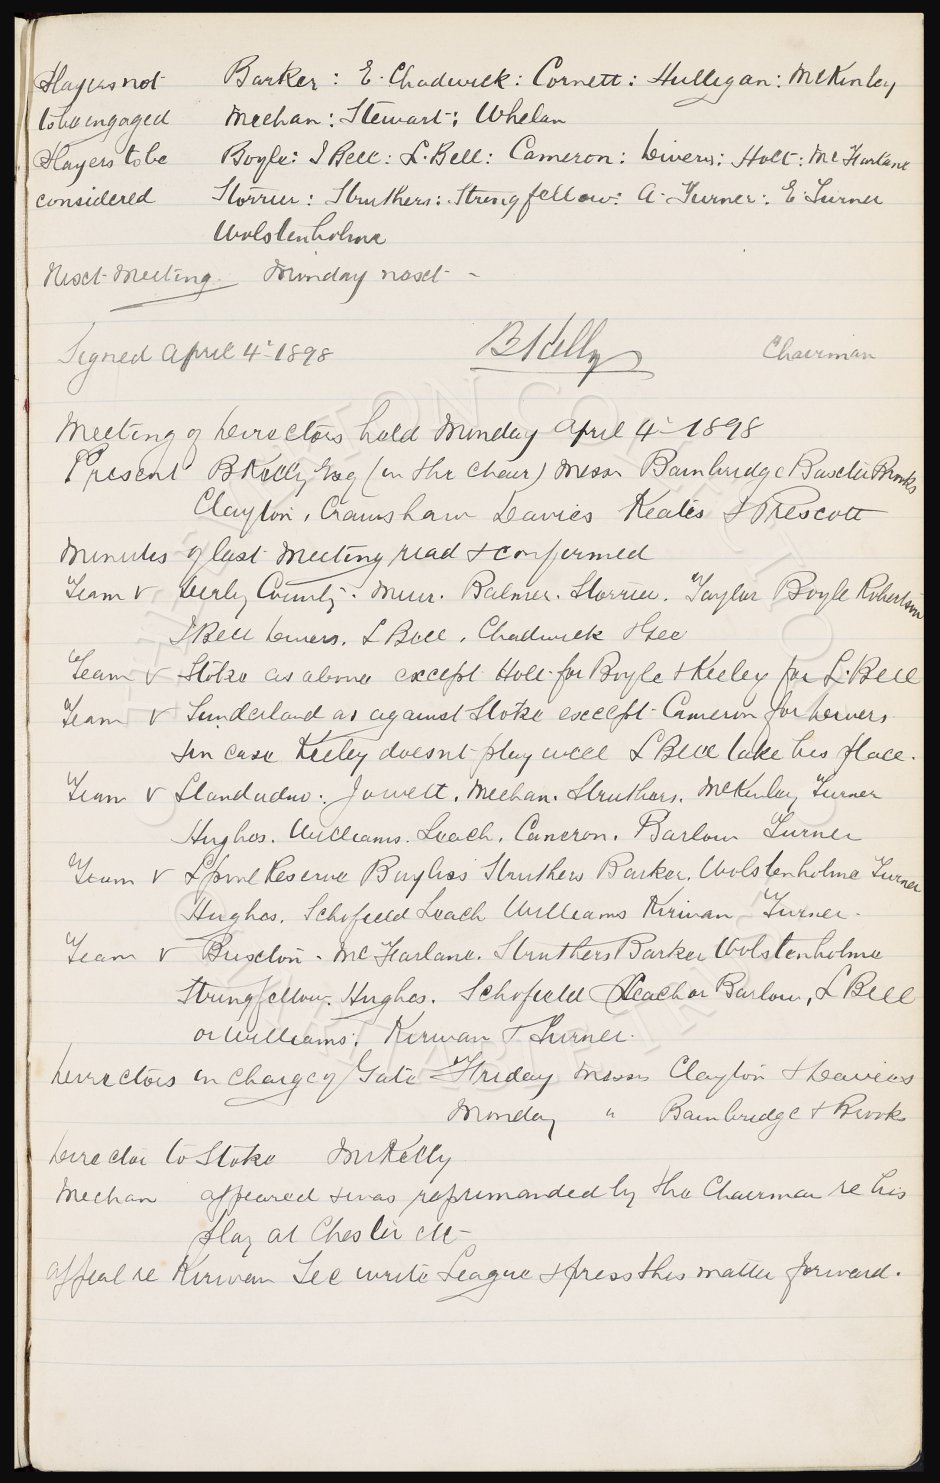 Players not Barker: E. Chadwick: Cornett: Hulligan: McKinley
to be engaged Meehan: Stewart: Whelan
Players to be Boyle: J Bell: L. Bell: Cameron: Divers: Holt: McFarlane
considered Storrier: Struthers: Stringfellow: A. Turner: E. Turner
Wolstenholme
Next Meeting Monday next -
Signed April 4th 1898 B Kelly Chairman
Meeting of Directors held Monday April 4th 1898
Present B Kelly Esq (in the Chair) Messrs Bainbridge Baxter Brooks
Clayton, Crawshaw Davies Keates & Prescott
Minutes of last Meeting read & confirmed
Team v Derby County. Muir. Balmer. Storrier. Taylor Boyle Robertson
J Bell Divers. L Bell. Chadwick & Gee
Team v Stoke as above except Holt for Boyle & Keeley for L. Bell
Team v Sunderland as against Stoke except Cameron for Divers
& in case Keeley doesnt play well L Bell take his place.
Team v Llandudno. Jowett. Meehan. Struthers. McKinley Turner
Hughes. Williams. Leach. Cameron. Barlow Turner
Team v Lpool Reserve Struthers Barker. Wolstenholme Turner
Hughes. Schofield Leach Williams Kirwan Turner.
Team v Buxton - McFarlane. Struthers Barker Wolstenholme
Stringfellow. Hughes. Schofield Leach or Barlow, L Bell
or Williams. Kirwan & Turner.
Directors in charge of Gate Friday Messrs Clayton & Davies
Monday " Bainbridge & Brooks
Director to Stoke Mr Kelly
Meehan appeared & was reprimanded by the Chairman re his
play at Chester etc
Appeal re Kirwan Sec write League & press this matter forward.